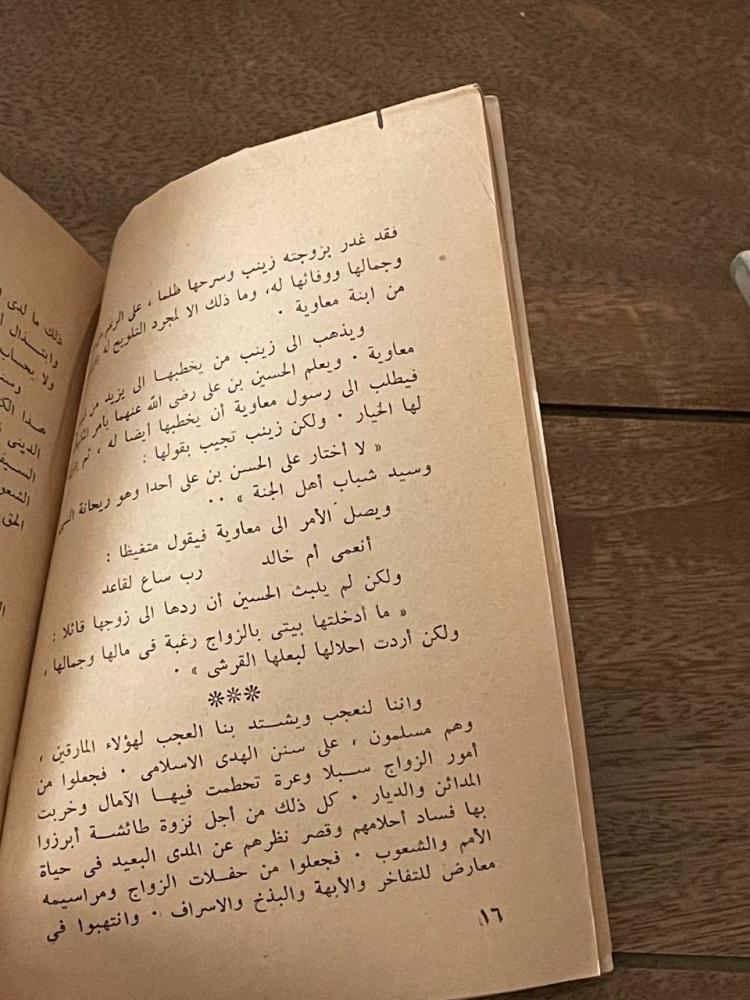 فقد غدر بزوجته زينب وسرحها ظلما ، على الرغم من
وجمالها ووفائها له، وما ذلك الا لمجرد التلويح له
من ابنة معاوية ٠
ويذهب الى زينب من يخطبهـا الى يزيد من
معاوية ٠ ويعلم الحسين بن على رضى الله عنهما بأمر
فيطلب الى رسول معاوية أن يخطبها أيضا له ، ثم
لها الخيار ٠ ولكن زينب تجيب بقولها :
« لا أختار على الحسن بن على أحدا وهو ريحانة
وسيد شباب أهل الجنة » ٠٠
ويصل الأمر الى معاوية فيقول متغيظا :
أنعمى أم خالد رب ساع لقاعد
ولكن لم يلبث الحسين أن ردها الى زوجها قائلا :
« ما أدخلتها بيتى بالزواج رغبة فى مالها وجمالها ،
ولكن أردت احلالها لبعلها القرشى » ٠
***
واننا لنعجب ويشــتد بنا العجب لهؤلاء المارقين ،
وهم مسلمون ، على سنن الهدى الاسلامى ٠ فجعلوا من
أمور الزواج ســبلا وعرة تحطمت فيهـا الآمال وخربت
المدائن والديار ٠ كل ذلك من أجل نزوة طائشــة أبرزوا
بها فساد أحلامهم وقصر نظرهم عن المدى البعيد فى حياة
الأمم والشعوب ٠ فجعلوا من حفـلات الزواج ومراسيمه
معارض للتفاخر والأبهة والبذخ والاسراف ٠ وانتهبوا فى
١٦
ذلك ما لدى
وابتــذال
ولا بحساب
هـذا
الدينى